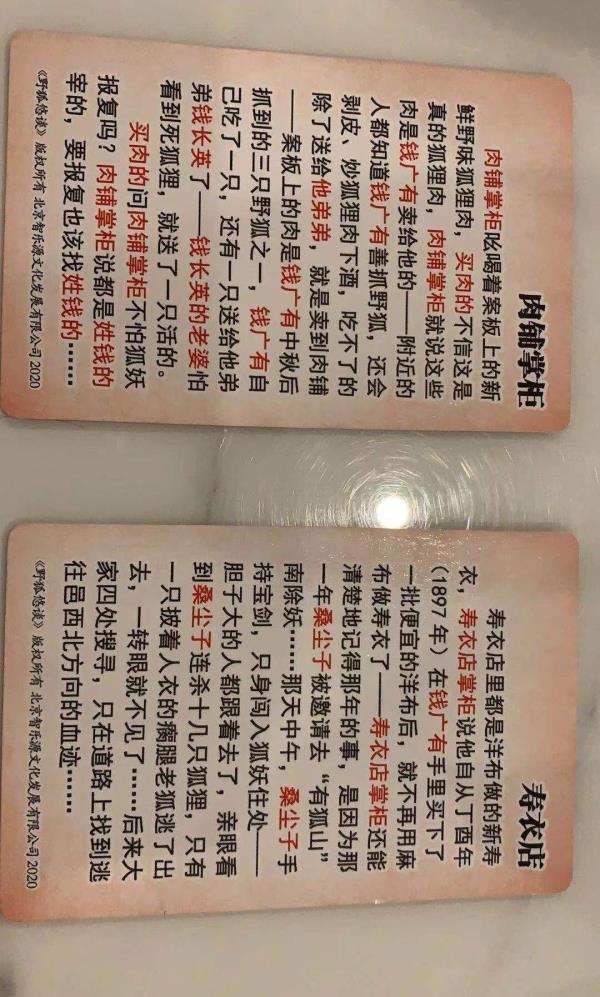 肉铺掌柜
肉铺掌柜吆喝着案板上的新
鲜野味狐狸肉，买肉的不信这是
真的狐狸肉，肉铺掌柜就说这些
肉是钱广有卖给他的——附近的
人都知道钱广有善抓野狐，还会
剥皮、炒狐狸肉下酒，吃不了的
除了送给他弟弟，就是卖到肉铺
——案板上的肉是钱广有中秋后
抓到的三只野狐之一，钱广有自
己吃了一只，还有一只送给他弟
弟钱长英了——钱长英的老婆怕
看到死狐狸，就送了一只活的。
买肉的问肉铺掌柜不怕狐妖
报复吗？肉铺掌柜说都是姓钱的
宰的，要报复也该找姓钱的……
《野狐悠谈》版权所有 北京智乐源文化发展有限公司 2020
寿衣店
寿衣店里都是洋布做的新寿
衣，寿衣店掌柜说他自从丁酉年
（1897 年）在钱广有手里买下了
一批便宜的洋布后，就不再用麻
布做寿衣了——寿衣店掌柜还能
清楚地记得那年的事，是因为那
一年桑尘子被邀请去“有狐山”
南除妖……那天中午，桑尘子手
持宝剑，只身闯入狐妖住处——
胆子大的人都跟着去了，亲眼看
到桑尘子连杀十几只狐狸，只有
一只披着人衣的瘸腿老狐逃了出
去，一转眼就不见了……后来大
家四处搜寻，只在道路上找到逃
往邑西北方向的血迹……
《野狐悠谈》版权所有 北京智乐源文化发展有限公司 2020